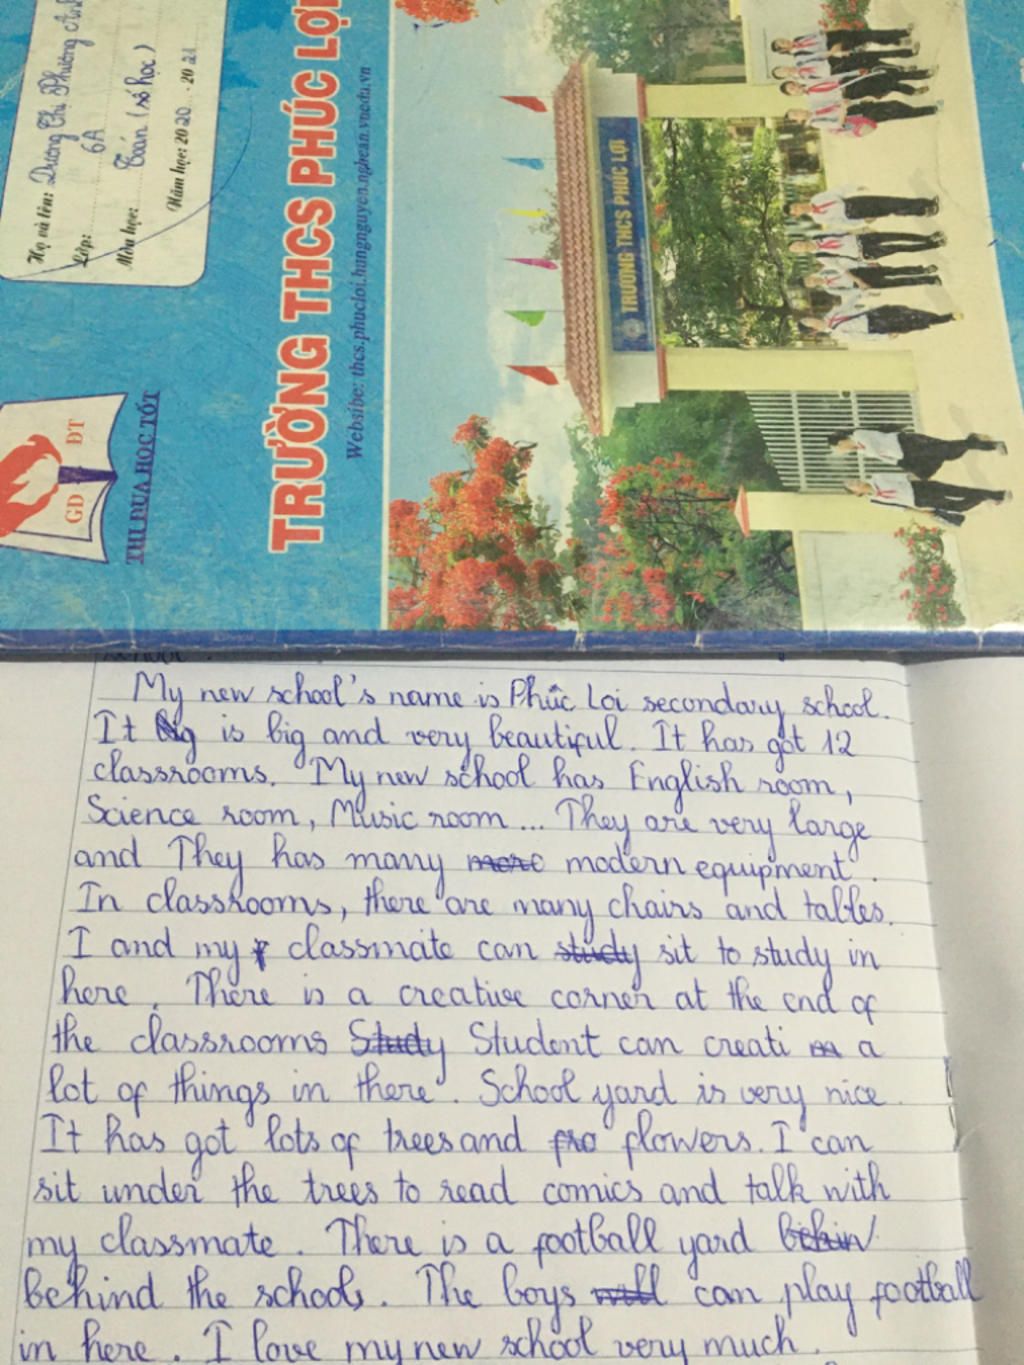 Họ và tên: Dương Thị Phương Anh
Lớp: 6A
Môn học: Toán (số học)
Năm học: 2020 - 2021
GD ĐT
THI ĐUA HỌC TỐT
TRƯỜNG THCS PHÚC LỢI
Websibe: thcs.phucloi.hungnguyen.nghean.vnedu.vn
TRƯỜNG THCS PHÚC LỢI
school.
My new school's name is Phúc Loi secondary school.
It is big and very beautiful. It has got 12
classrooms. My new school has English room,
Science room, Music room... They are very large
and They has many more modern equipment.
In classrooms, there are many chairs and tables.
I and my classmate can study sit to study in
here. There is a creative corner at the end of
the classrooms Study Student can creati a
lot of things in there. School yard is very nice.
It has got lots of trees and fro flowers. I can
sit under the trees to read comics and talk with
my classmate. There is a football yard behin
behind the school. The boys will can play football
in here. I love my new school very much.